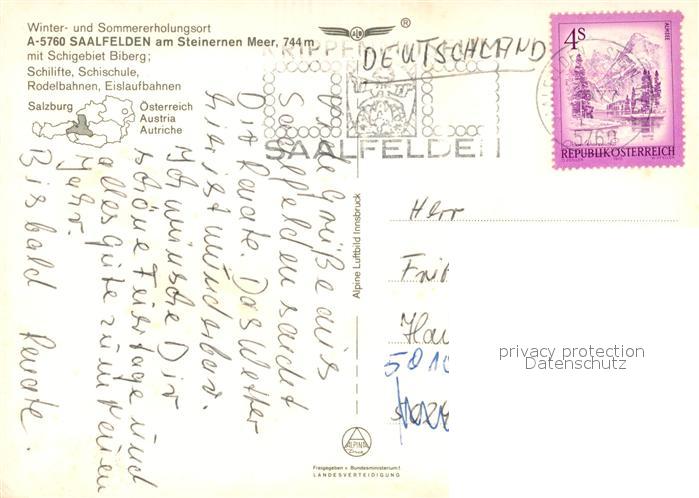 Winter- und Sommererholungsort
A-5760 SAALFELDEN am Steinernen Meer, 744 m
mit Schigebiet Biberg;
Schilifte, Schischule,
Rodelbahnen, Eislaufbahnen
Salzburg
Österreich
Austria
Autriche
®
KRIPPEN
SAALFELDEN
DEUTSCHLAND
4S
ALMSEE
REPUBLIK ÖSTERREICH
Grüße aus
Saalfelden sendet
Dir Renate. Das Wetter
hier ist wunderbar.
Ich wünsche Dir
schöne Feiertage und
alles Gute zum neuen
Jahr.
Bis bald Renate.
Alpine Luftbild Innsbruck
Herr
ALPINE
Freigegeben v. Bundesministerium f.
LANDESVERTEIDIGUNG
privacy protection
Datenschutz